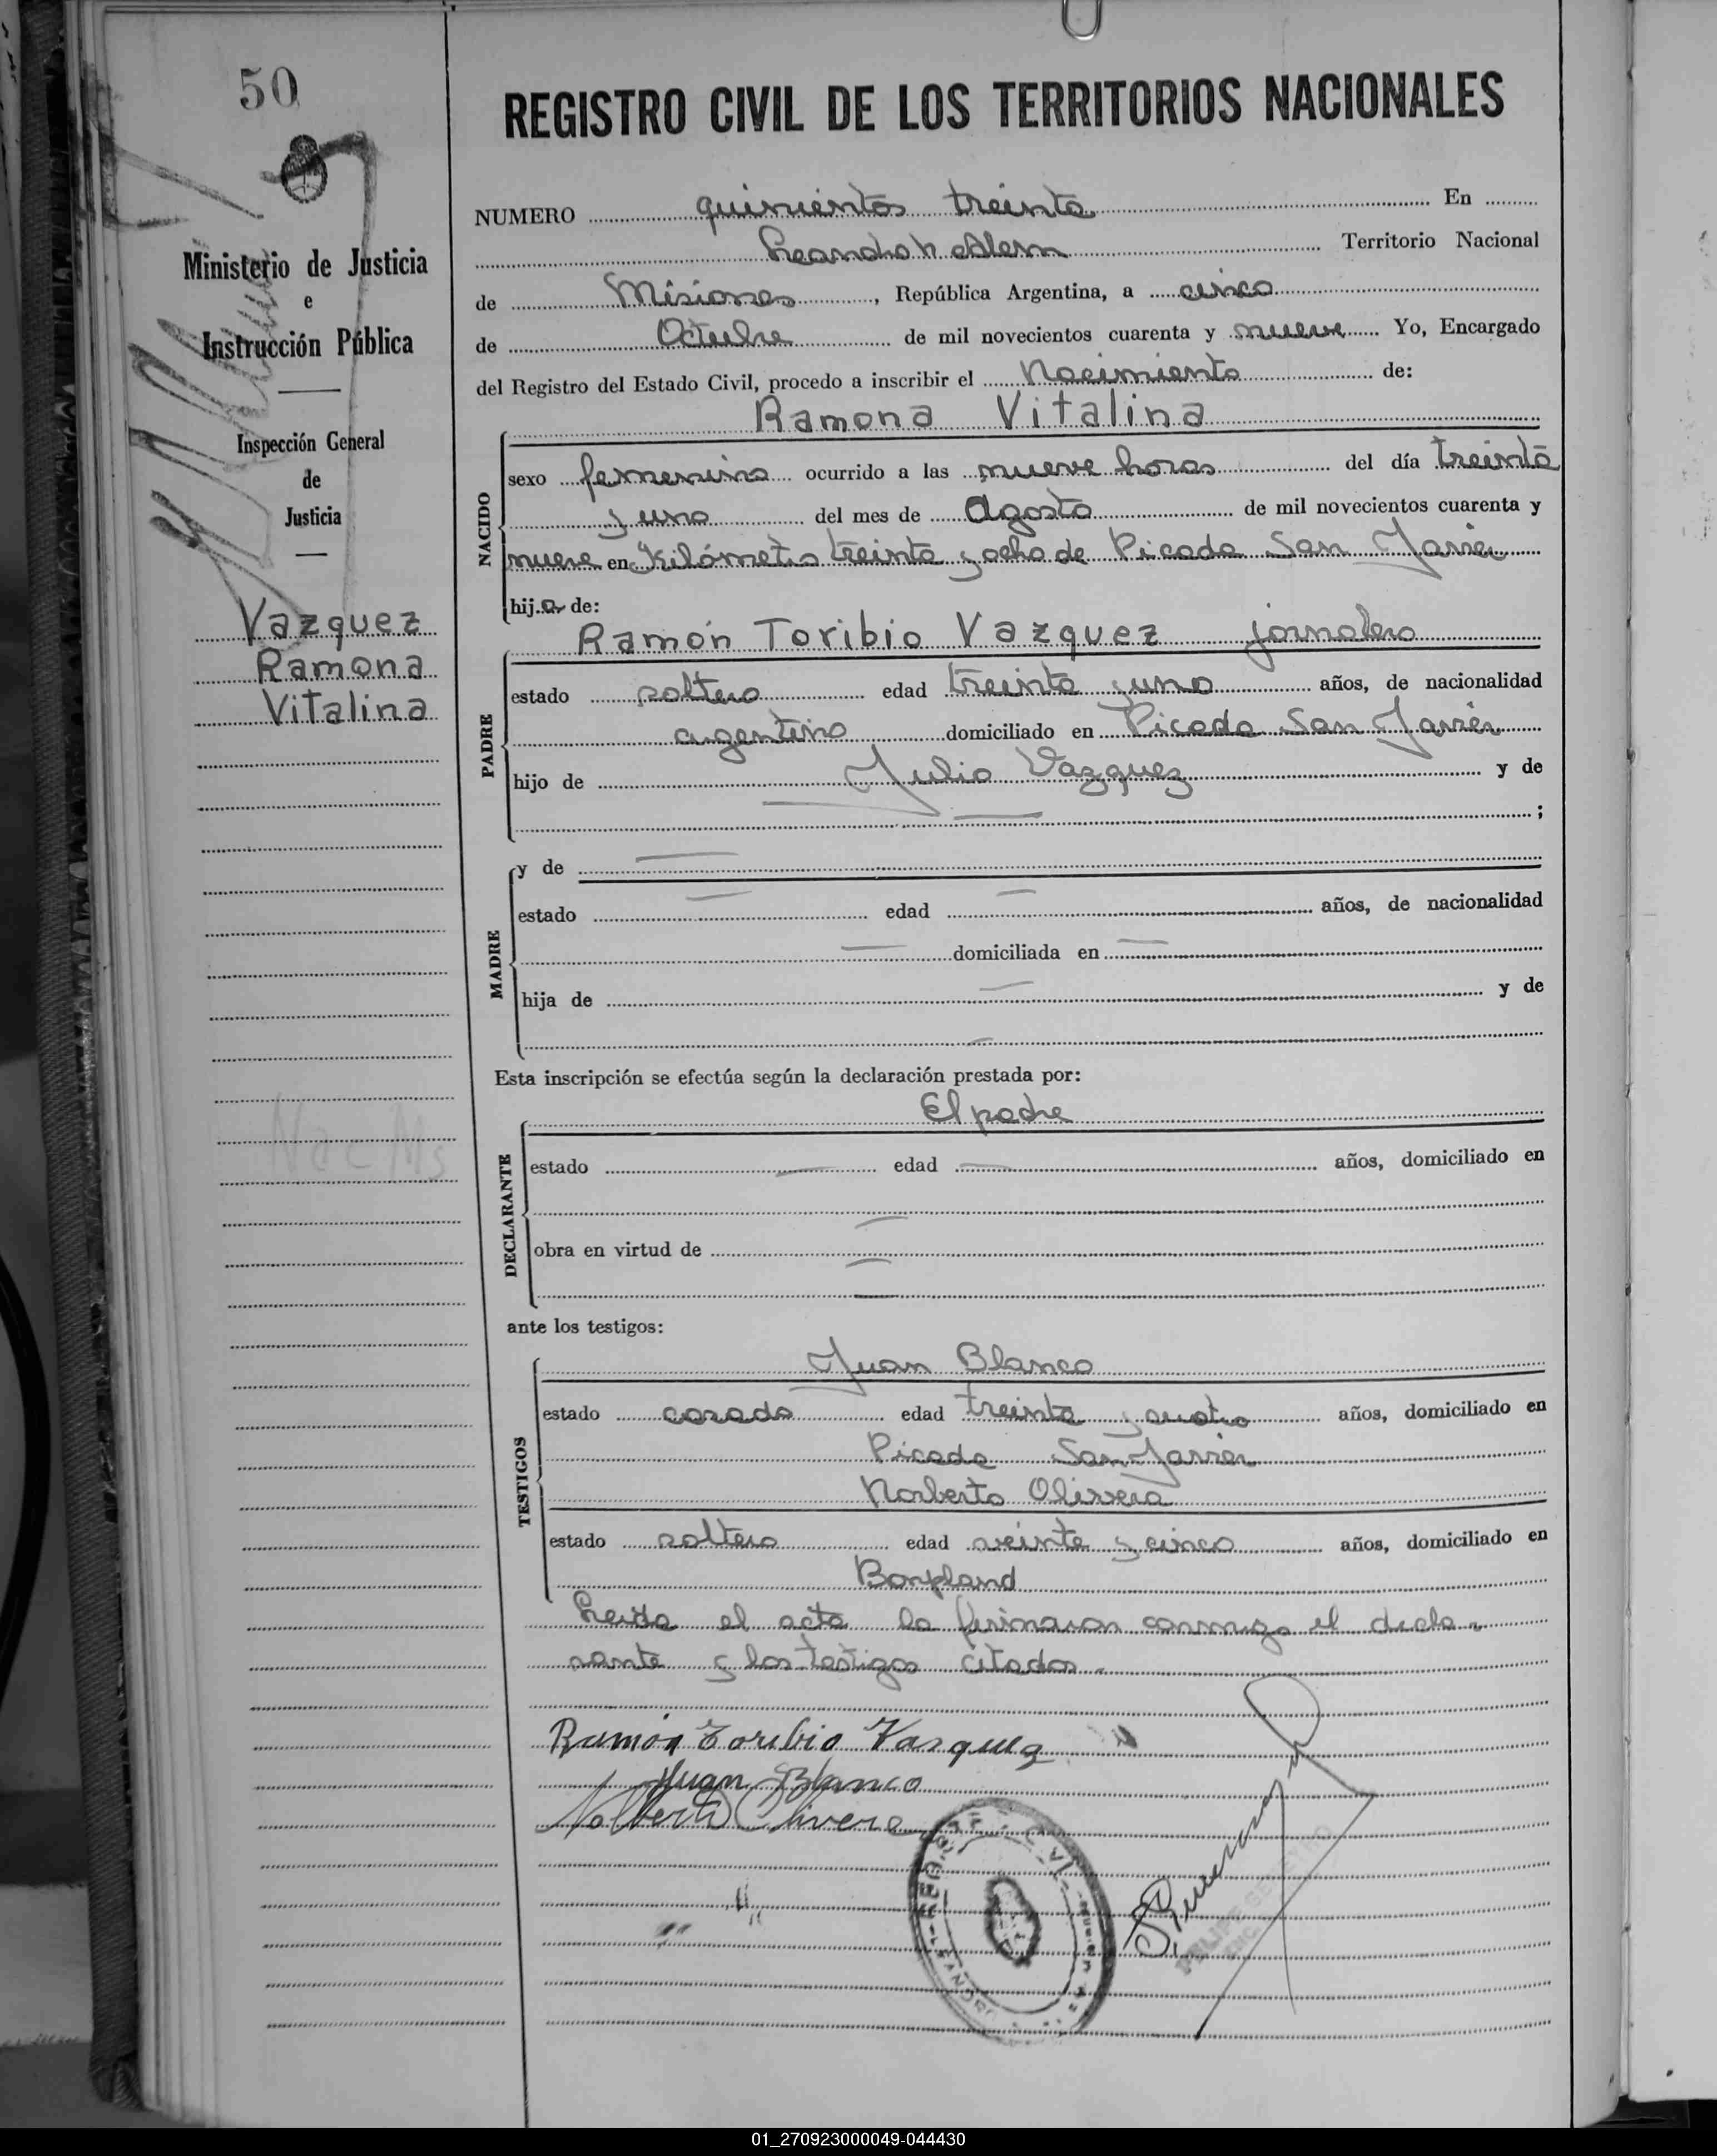 50
REGISTRO CIVIL DE LOS TERRITORIOS NACIONALES
Ministerio de Justicia
e
Instrucción Pública
Inspección General
de
Justicia
Vazquez
Ramona
Vitalina
Nac Ms
NUMERO quinientos treinta En
Leandro N Alem Territorio Nacional
de Misiones, República Argentina, a cinco
de Octubre de mil novecientos cuarenta y nueve Yo, Encargado
del Registro del Estado Civil, procedo a inscribir el Nacimiento de:
Ramona Vitalina
NACIDO
sexo femenino ocurrido a las nueve horas del día treinta
y uno del mes de Agosto de mil novecientos cuarenta y
nueve en Kilómetro treinta y ocho de Picada San Javier
hija de:
Ramón Toribio Vazquez jornalero
PADRE
estado soltero edad treinta y uno años, de nacionalidad
argentino domiciliado en Picada San Javier
hijo de Julio Vazquez y de
;
y de
MADRE
estado edad años, de nacionalidad
domiciliada en
hija de y de
Esta inscripción se efectúa según la declaración prestada por:
El padre
DECLARANTE
estado edad años, domiciliado en
obra en virtud de
ante los testigos:
Juan Blanco
TESTIGOS
estado casado edad treinta y cuatro años, domiciliado en
Picada San Javier
Norberto Olivera
estado soltero edad veinte y cinco años, domiciliado en
Bonpland
Leida el acta la firmaron conmigo el decla-
rante y los testigos citados.
Ramón Toribio Vazquez
Juan Blanco
Nolberto Olivera
01_270923000049-044430